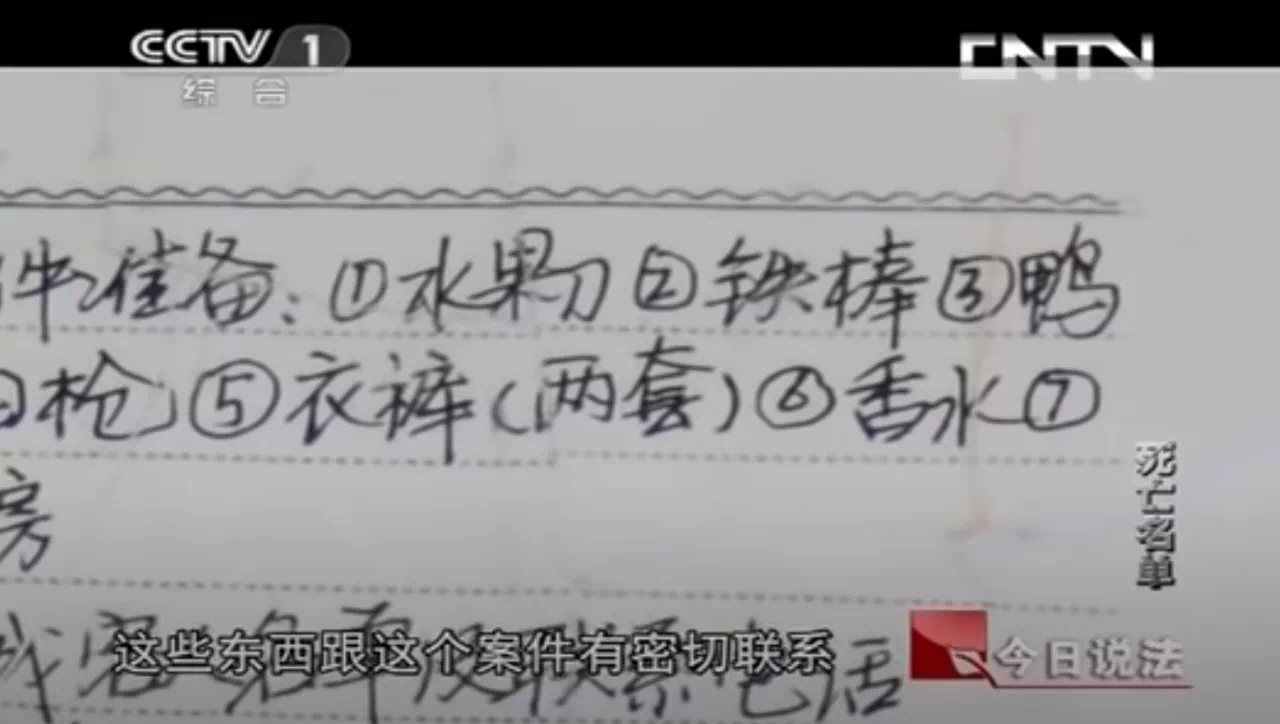 CCTV 1
综合
CNTV
件准备：①水果刀②铁棒③鸭
枪⑤衣裤（两套）⑥香水⑦
房
客人名单及联系电话
这些东西跟这个案件有密切联系
死亡名单
今日说法